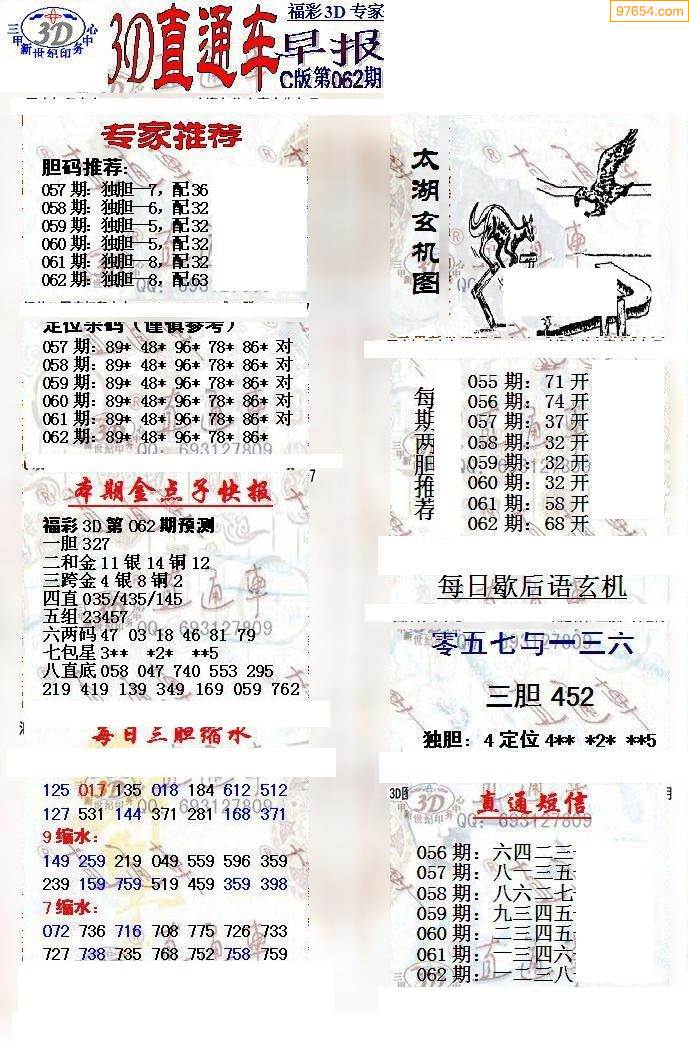 97654.com
福彩3D 专家
三甲 3D 心中
新世纪印务
3D直通车
早报
C版第062期
专家推荐
胆码推荐:
057 期: 独胆—7, 配36
058 期: 独胆—6, 配32
059 期: 独胆—5, 配32
060 期: 独胆—5, 配32
061 期: 独胆—8, 配32
062 期: 独胆—8, 配63
定位杀码（谨慎参考）
057 期: 89* 48* 96* 78* 86* 对
058 期: 89* 48* 96* 78* 86* 对
059 期: 89* 48* 96* 78* 86* 对
060 期: 89* 48* 96* 78* 86* 对
061 期: 89* 48* 96* 78* 86* 对
062 期: 89* 48* 96* 78* 86*
QQ: 693127809
本期金点子快报
福彩 3D 第 062 期预测
一胆 327
二和金 11 银 14 铜 12
三跨金 4 银 8 铜 2
四直 035/435/145
五组 23457
六两码 47 03 18 46 81 79
七包星 3** *2* **5
八直底 058 047 740 553 295
219 419 139 349 169 059 762
每日三胆缩水
125 017 135 018 184 612 512
127 531 144 371 281 168 371
9 缩水:
149 259 219 049 559 596 359
239 159 759 519 459 359 398
7 缩水:
072 736 716 708 775 726 733
727 738 735 768 752 758 759
太湖玄机图
每期两胆推荐
055 期: 71 开
056 期: 74 开
057 期: 37 开
058 期: 32 开
059 期: 32 开
060 期: 32 开
061 期: 58 开
062 期: 68 开
每日歇后语玄机
零五七与一三六
三胆 452
独胆: 4 定位 4** *2* **5
直通短信
QQ: 693127809
056 期: 六四二三
057 期: 八一三五
058 期: 八六二七
059 期: 九三四五
060 期: 二三四五
061 期: 一三四六
062 期: 一二三八